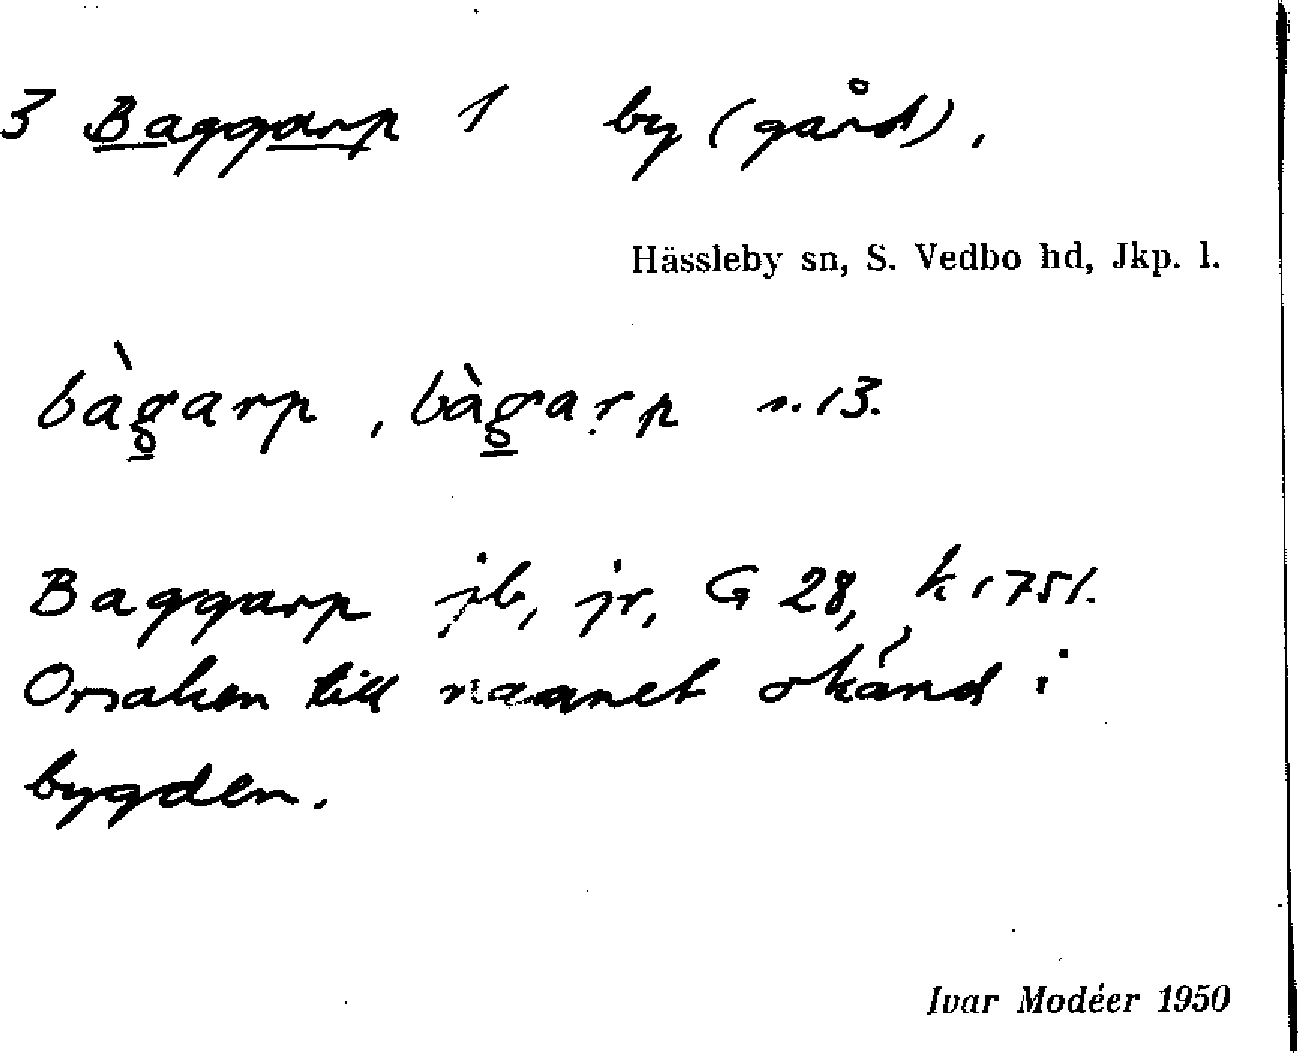 3 Baggarp 1 by (gård).
Hässleby sn, S. Vedbo hd, Jkp. l.
bàg̲arp, bàg̲aṛp s. 13.
Baggarp jb, jr, G 28, k 1751.
Orsaken till namnet okänd i
bygden.
Ivar Modéer 1950